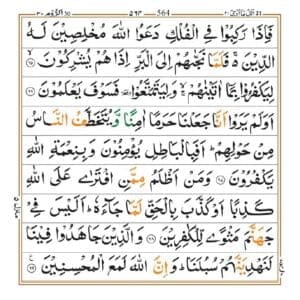 ٥٦٤
فَاِذَا رَكِبُوْا فِي الْفُلْكِ دَعَوُا اللّٰهَ مُخْلِصِيْنَ لَهُ
الدِّيْنَ ەۚ فَلَمَّا نَجّٰىهُمْ اِلَى الْبَرِّ اِذَا هُمْ يُشْرِكُوْنَ ۙ٦٥
لِيَكْفُرُوْا بِمَاۤ اٰتَيْنٰهُمْ ۙۚ وَلِيَتَمَتَّعُوْا ۥ فَسَوْفَ يَعْلَمُوْنَ ٦٦
اَوَلَمْ يَرَوْا اَنَّا جَعَلْنَا حَرَمًا اٰمِنًا وَّيُتَخَطَّفُ النَّاسُ
مِنْ حَوْلِهِمْ ؕ اَفَبِالْبَاطِلِ يُؤْمِنُوْنَ وَبِنِعْمَةِ اللّٰهِ
يَكْفُرُوْنَ ٦٧ وَمَنْ اَظْلَمُ مِمَّنِ افْتَرٰى عَلَى اللّٰهِ
كَذِبًا اَوْ كَذَّبَ بِالْحَقِّ لَمَّا جَآءَهٗ ؕ اَلَيْسَ فِيْ
جَهَنَّمَ مَثْوًى لِّلْكٰفِرِيْنَ ٦٨ وَالَّذِيْنَ جَاهَدُوْا فِيْنَا
لَنَهْدِيَنَّهُمْ سُبُلَنَا ؕ وَاِنَّ اللّٰهَ لَمَعَ الْمُحْسِنِيْنَ ٦٩